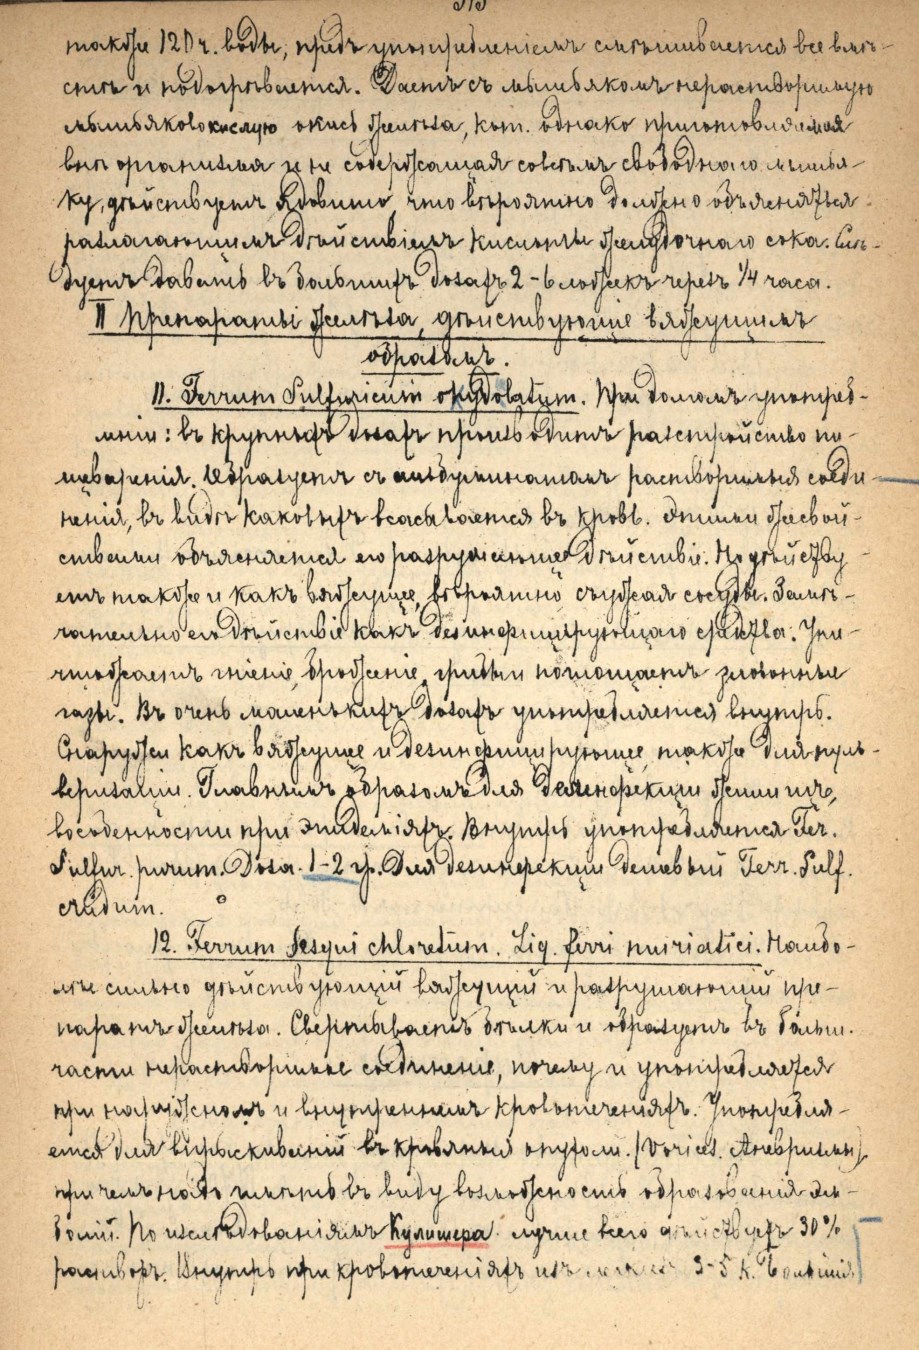 313
также 120 ч. воды, предъ употребленіемъ смѣшивается все вмѣ-
стѣ и подогрѣвается. Даетъ съ мышьякомъ нерастворимую
мышьяковокислую окись желѣза, кот. однако приготовляемая
внѣ организма и не содержащая совсѣмъ свободнаго мышья-
ку, дѣйствуетъ ядовито, что вѣроятно должно объясняться
разлагающимъ дѣйствіемъ кислоты желудочнаго сока. Слѣ-
дуетъ давать въ большихъ дозахъ 2-6 ложекъ черезъ 1/4 часа.
II Препараты желѣза, дѣйствующіе вяжущимъ
образомъ.
11. Ferrum Sulfuricum oxydolatum. При долгомъ употреб-
леніи: въ крупныхъ дозахъ производитъ разстройство пи-
щеваренія. Образуетъ съ альбуминатомъ растворимыя соеди-
ненія, въ видѣ каковыхъ всасывается въ кровь. Этими же свой-
ствами объясняется его разрушающее дѣйствіе. Но дѣйству-
етъ также и какъ вяжущее, вѣроятно съужая сосуды. Замѣ-
чательно его дѣйствіе какъ дезинфицирующаго средства. Уни-
чтожаетъ гніеніе, броженіе, грибки поглощаетъ зловонные
газы. Въ очень маленькихъ дозахъ употребляется внутрь.
Снаружи какъ вяжущее и дезинфицирующее, также для пуль-
веризаціи. Главнымъ образомъ для дезинфекціи
вособенности при эпидеміяхъ. Внутрь употребляется Fer.
Sulfur. purum. Доза. 1-2 гр. Для дезинфекціи дешевый Ferr. Sulf.
crudum.
12. Ferrum Sesqui chloretum. Liq. ferri muriatici. Наибо-
лѣе сильно дѣйствующій вяжущій и разрушающій пре-
паратъ желѣза. Свертываетъ бѣлки и образуетъ въ больш.
части нерастворимое соединеніе, почему и употребляется
при наружномъ и внутреннемъ кровотеченіяхъ. Употребля-
ется для впрыскиваній въ кровяныя опухоли. (Varices. Аневризмы)
при чемъ надо имѣть въ виду возможность образованія эм-
болій. По изслѣдованіямъ Кулишера лучше всего дѣйствуетъ 30%
растворъ. Внутрь при кровотеченіяхъ изъ 3-5 к. Большія